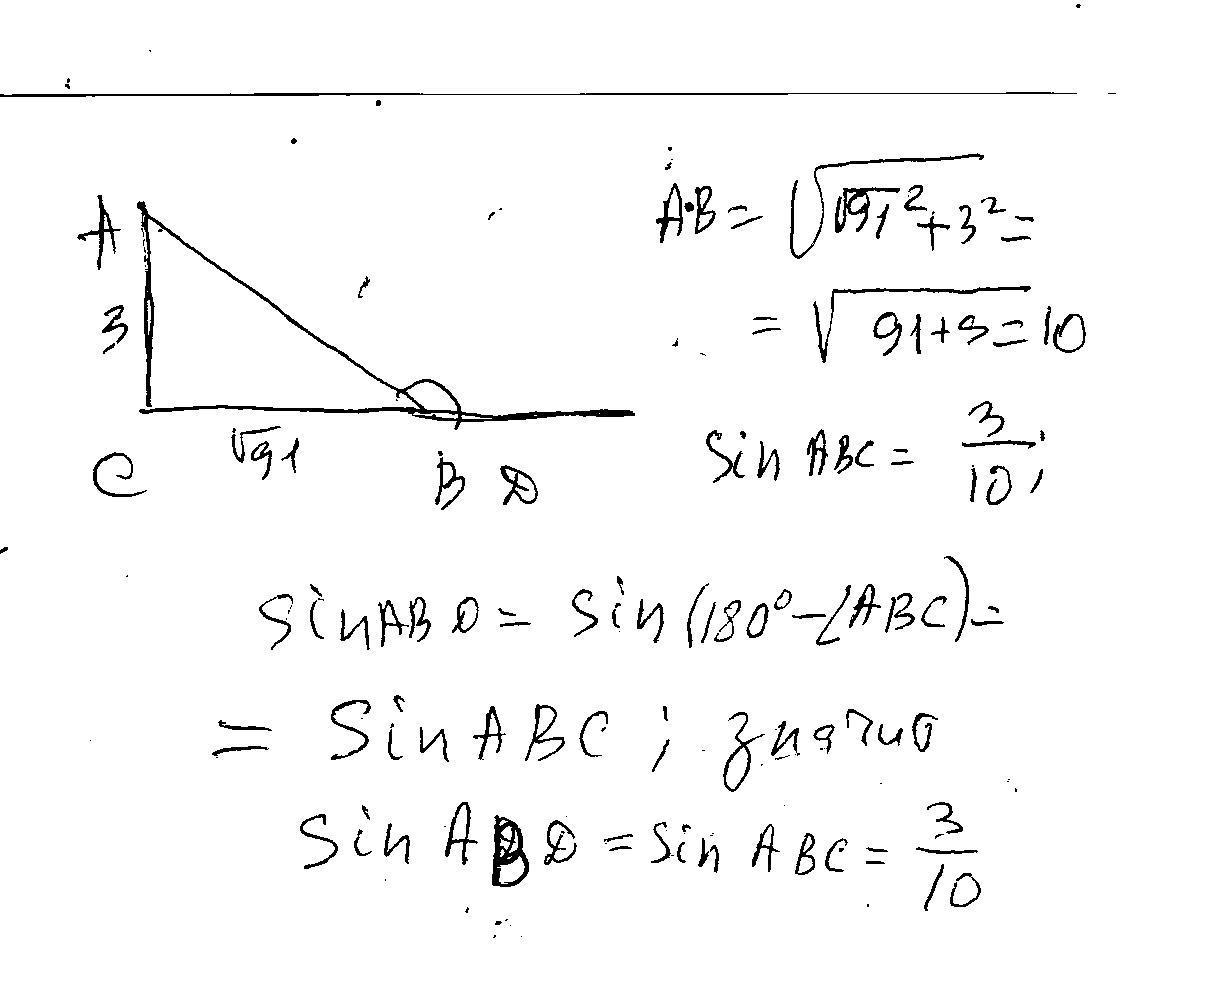 A
3
C
√91
B D
AB = √(√91² + 3²) =
= √(91+9) = 10
sin ABC = 3/10;
sin ABD = sin (180° - ∠ABC) =
= sin ABC; значит
sin ABD = sin ABC = 3/10